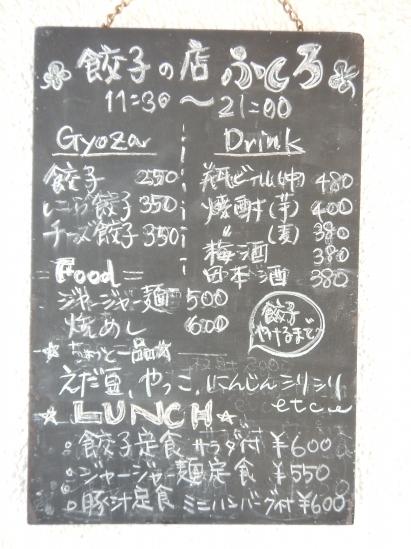 餃子の店 ふくろ
11:30〜21:00
Gyoza
餃子 250
にら餃子 350
チーズ餃子 350
Drink
瓶ビール(中) 480
焼酎(芋) 400
〃(麦) 380
梅酒 380
日本酒 380
Food
ジャージャー麺 500
焼めし 600
餃子
やけるまで
☆ちょっと一品☆
えだ豆、やっこ、にんじんシリシリ
etc
☆LUNCH☆
餃子定食 サラダ付 ¥600
ジャージャー麺定食 ¥550
豚汁定食 ミニハンバーグ付 ¥600